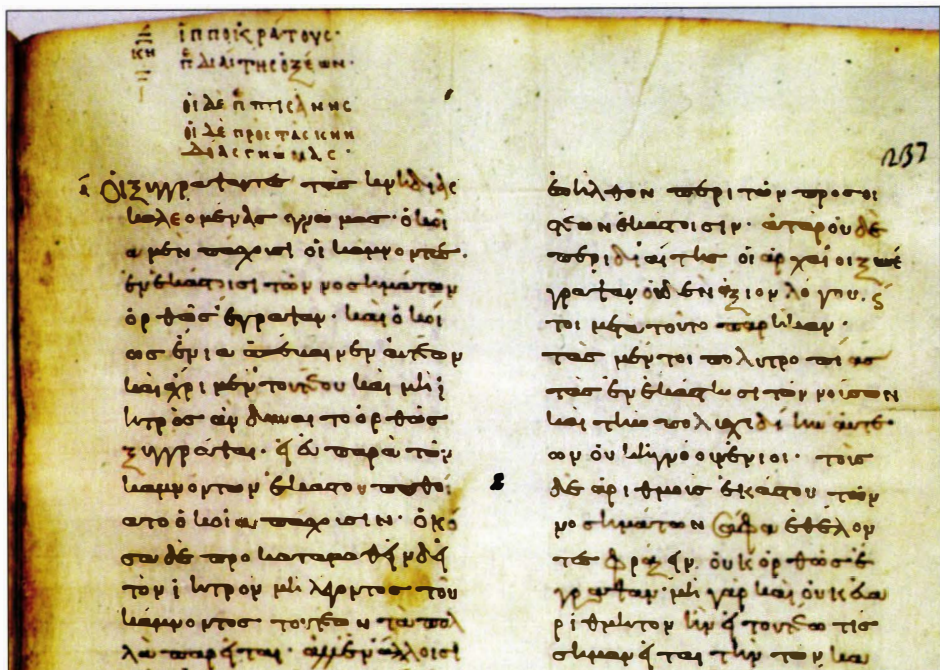 κη
ἱπποκράτους·
π διαίτης ὀξέων·
οἱ δὲ π πτισάνης
οἱ δὲ πρὸς τὰς κνι
δίας γνώμας·
237
α Οἱ ξυγγράψαντες τὰς κνιδίας
καλεομένας γνώμας· ὁκοῖ
α μὲν πάσχουσι οἱ κάμνοντες·
ἐν ἑκάστοισι τῶν νοσημάτων
ὀρθῶς ἔγραψαν· καὶ ὁκοί
ως ἔνια ἀπέβαινεν αὐτέων
καὶ ἄχρι μὲν τουτέου καὶ μὴ ἰ
ητρὸς ἂν δύναιτο ὀρθῶς
ξυγγράψαι· εἰ εὖ παρὰ τῶν
καμνόντων ἑκάστου πύθοι
ατο ὁκοῖα πάσχουσιν· ὁκό
σα δὲ προκαταμαθεῖν δεῖ
τὸν ἰητρὸν μὴ λέγοντος τοῦ
κάμνοντος τουτέων τὰ πολ
λὰ παρεῖται· ἄλλοισι
ἐπίλησον περὶ τῶν
ἑκάστοισιν· ἀτὰρ οὐδὲ
περὶ διαίτης οἱ ἀρχαῖοι ξυνέ
γραψαν οὐδὲν ἄξιον λόγου·
τοι μέγα τοῦτο παρῆκαν·
τὰς μέντοι πολυτροπίας
τὰς ἐν ἑκάστῃσι τῶν νούσων
καὶ τὴν πολυσχιδίην αὐτέ
ων οὐκ ἠγνόουν ἔνιοι· τοὺς
δὲ ἀριθμοὺς ἑκάστου τῶν
νοσημάτων σάφα ἐθέλον
τες φράζειν οὐκ ὀρθῶς ἔ
γραψαν· μὴ γὰρ καὶ οὐκ εὐα
ρίθμητον ἦν εἰ τουτέῳ τις
σημανεῖται τὴν τῶν κα